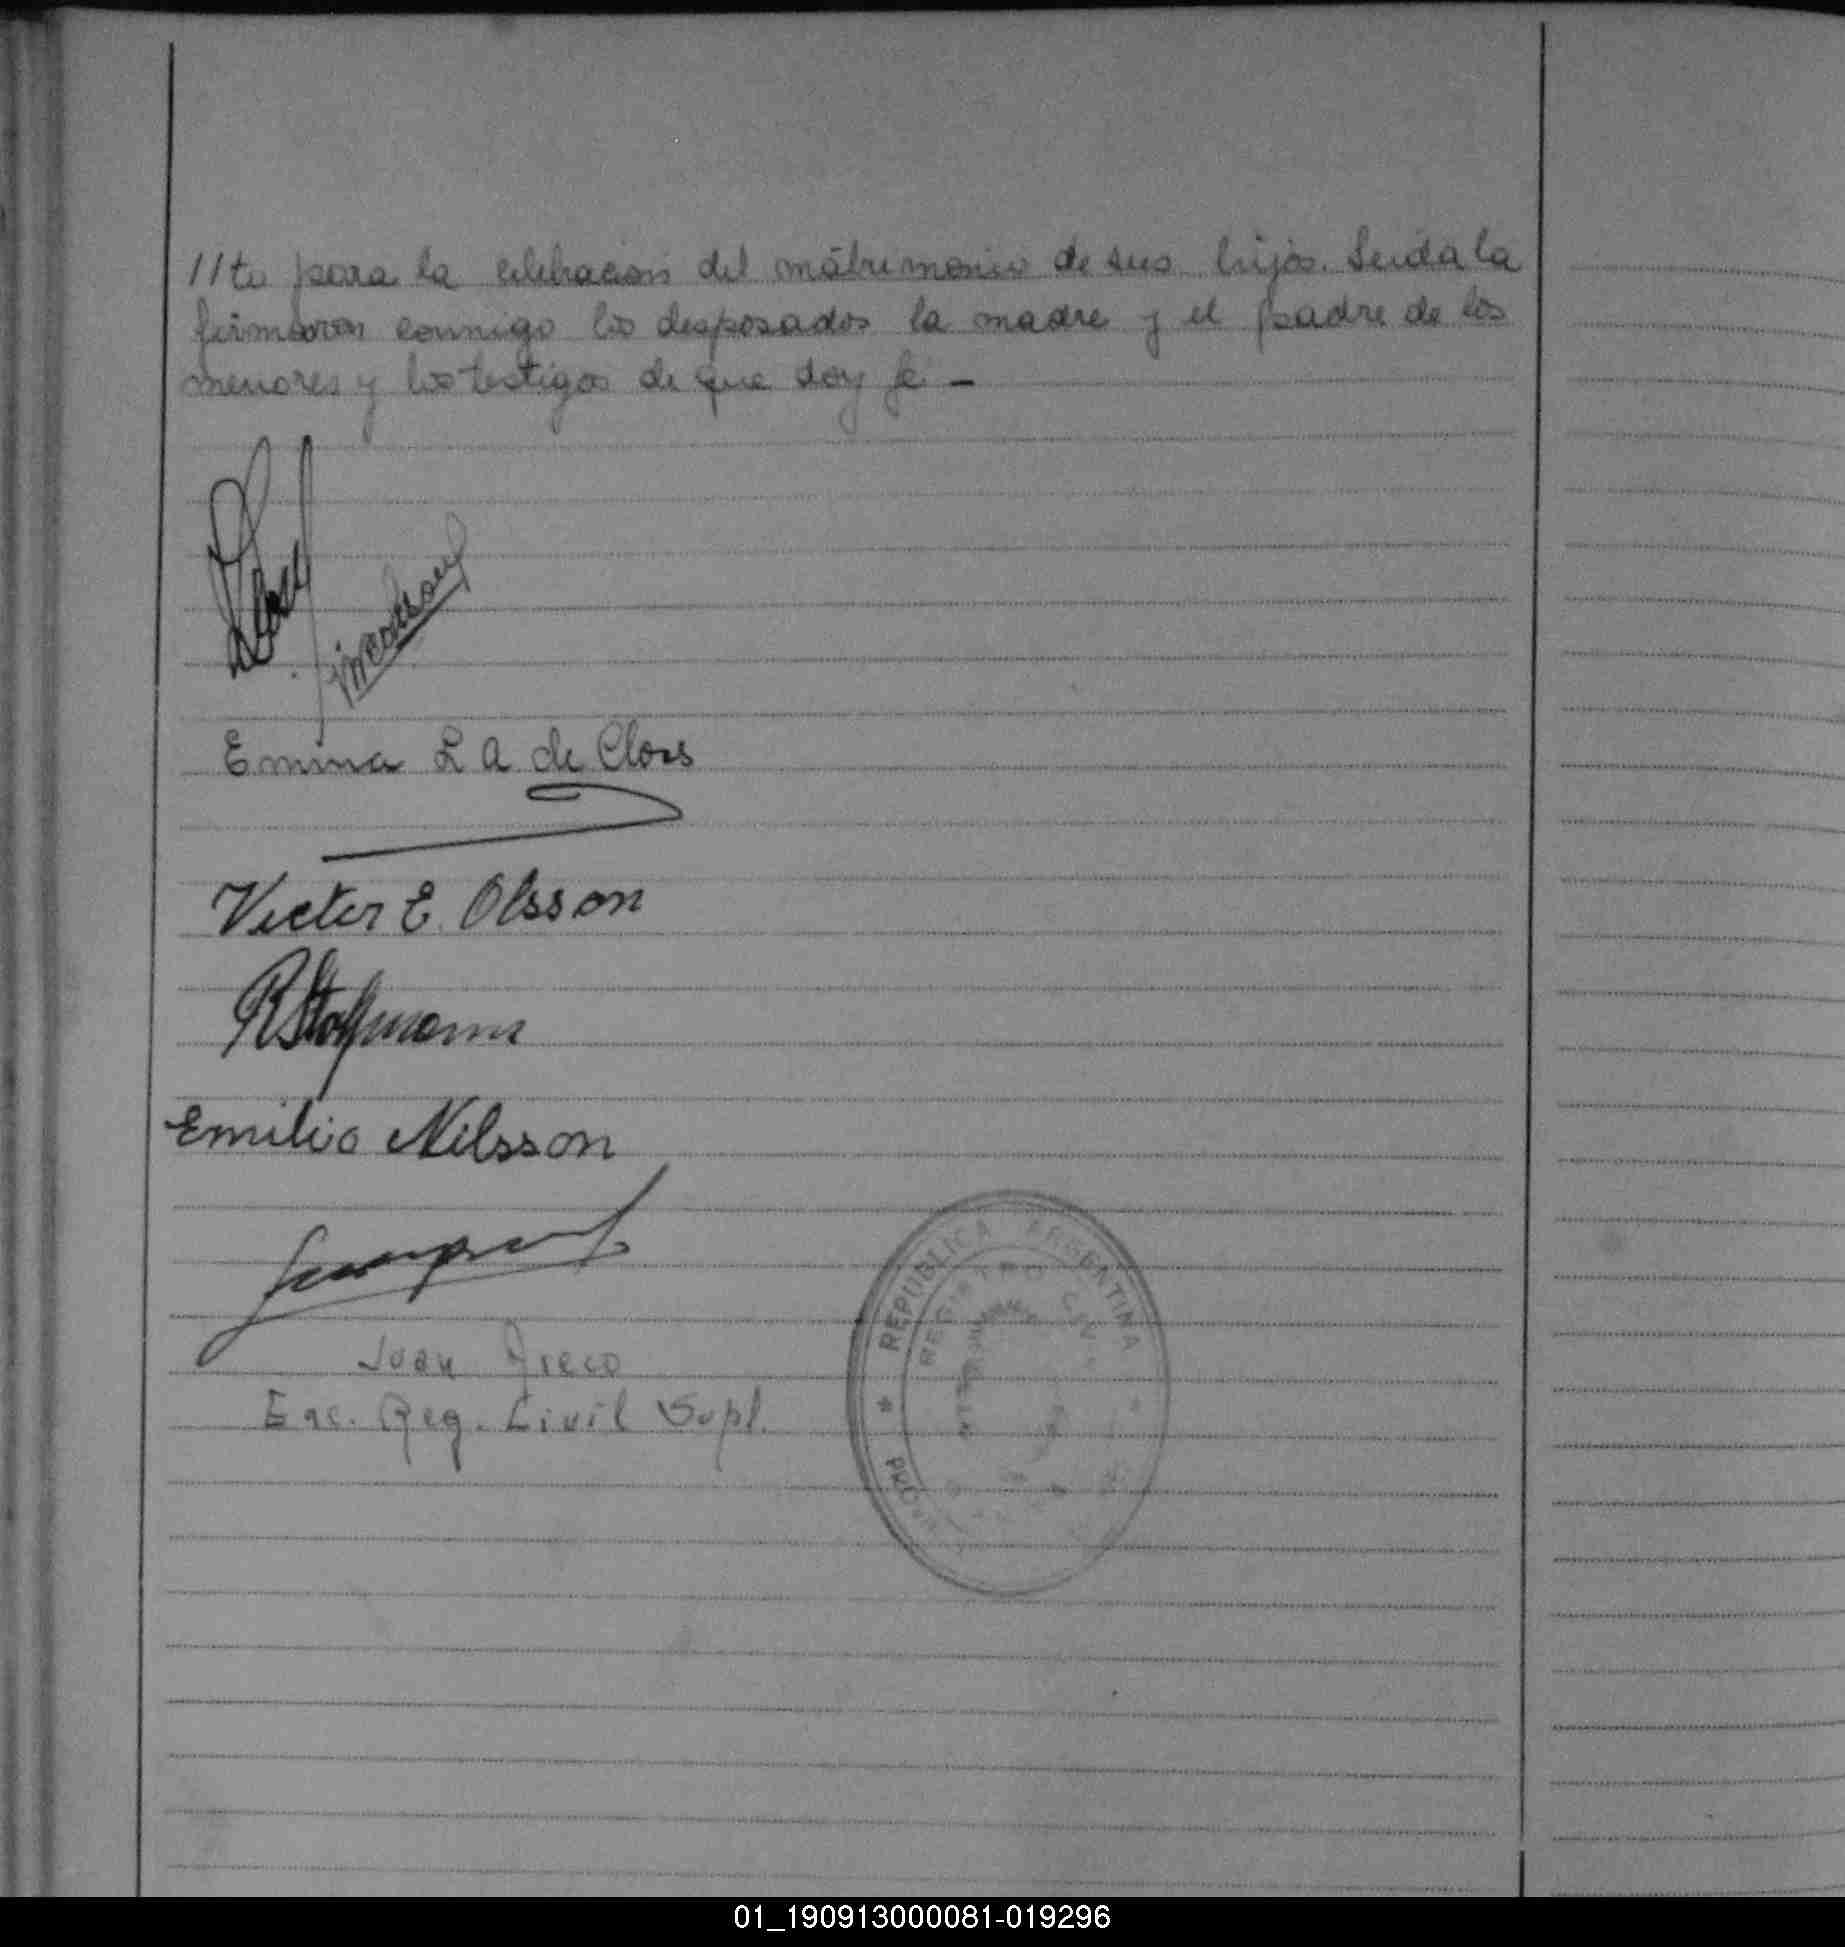 //to para la celebración del matrimonio de sus hijos. Leida la
firmaron conmigo los desposados la madre y el padre de los
menores y los testigos de que doy fé -
Emma L A de Closs
Victor E. Olsson
Emilio Nilsson
Juan Greco
Enc. Reg. Civil Supl.
REPUBLICA ARGENTINA
REGISTRO CIVIL
01_190913000081-019296